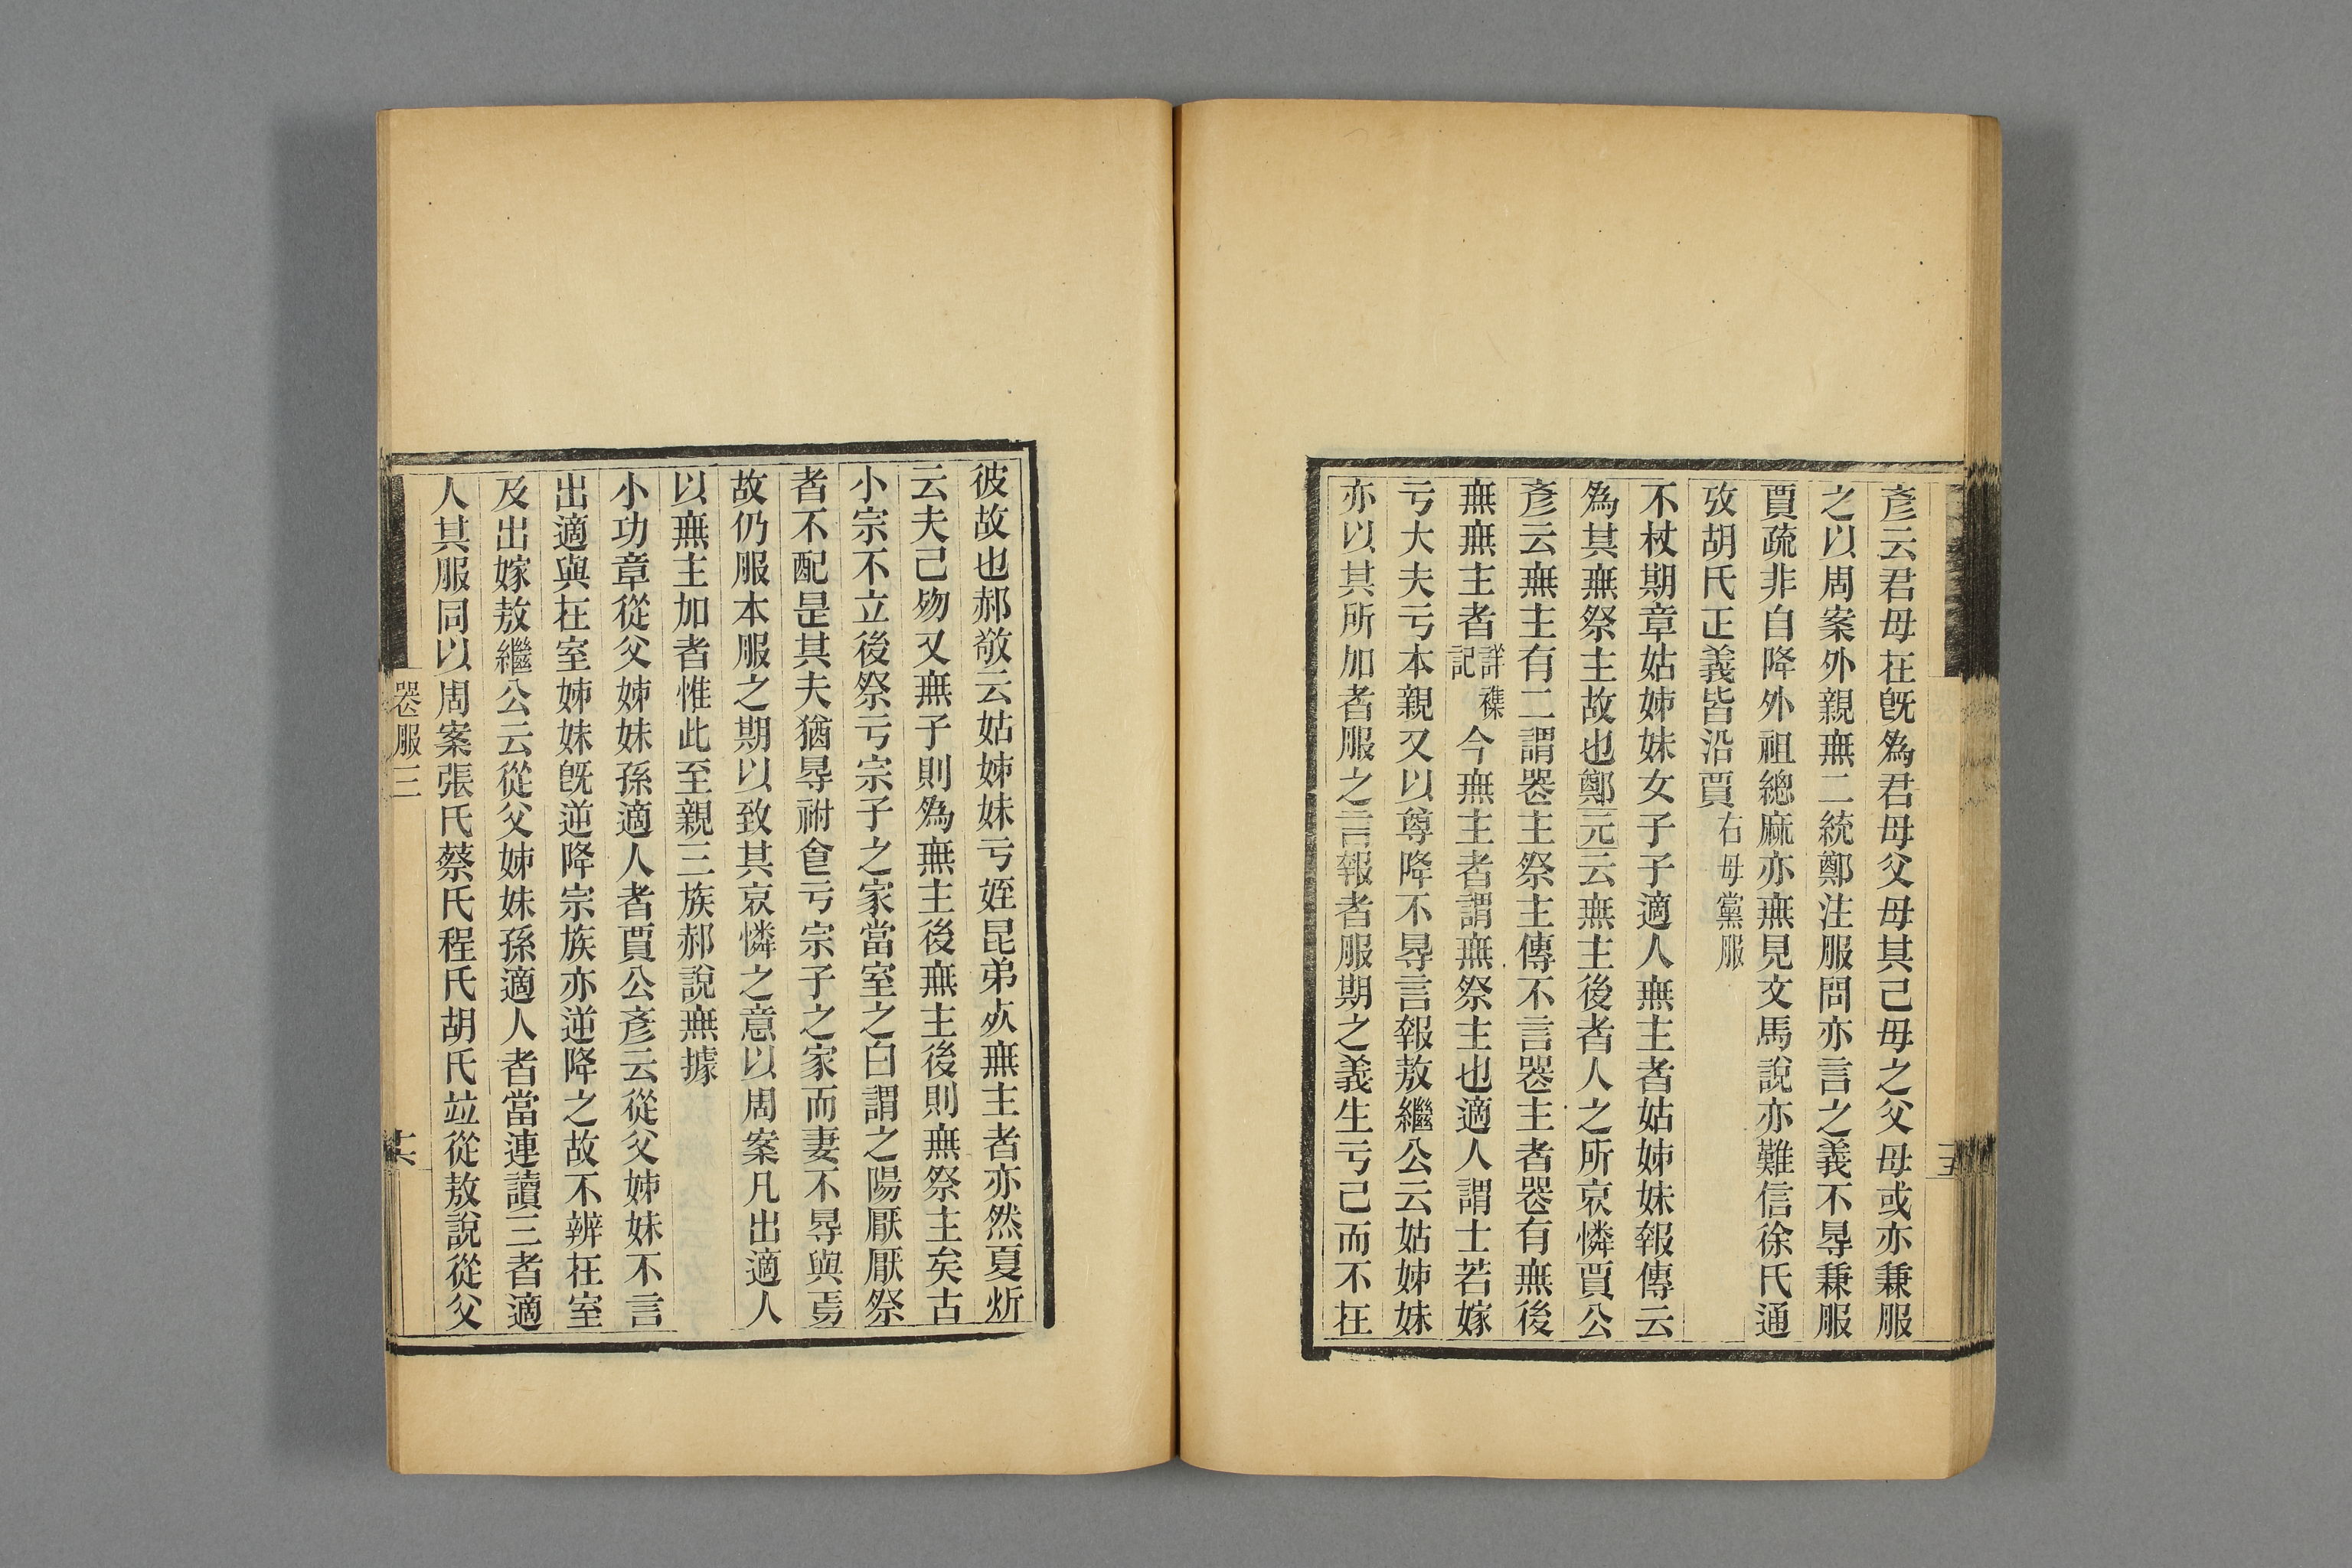 彥云君母在旣爲君母父母其己母之父母或亦兼服
之以周案外親無二統鄭注服問亦言之義不㝵兼服
賈疏非自降外祖總麻亦無見文馬說亦難信徐氏通
攷胡氏正義皆沿賈右母黨服
不杖期章姑姊妹女子子適人無主者姑姊妹報傳云
爲其無祭主故也鄭元云無主後者人之所哀憐賈公
彥云無主有二謂喪主祭主傳不言喪主者喪有無後
無無主者詳襍記今無主者謂無祭主也適人謂士若嫁
亏大夫亏本親又以尊降不㝵言報敖繼公云姑姊妹
亦以其所加者服之言報者服期之義生亏己而不在
彼故也郝敬云姑姊妹亏姪昆弟㱙無主者亦然夏炘
云夫己歾又無子則爲無主後無主後則無祭主矣古
小宗不立後祭亏宗子之家當室之白謂之陽厭厭祭
者不配昰其夫猶㝵祔㑹亏宗子之家而妻不㝵與焉
故仍服本服之期以致其哀憐之意以周案凡出適人
以無主加者惟此至親三族郝說無據
小功章從父姊妹孫適人者賈公彥云從父姊妹不言
出適與在室姊妹旣逆降宗族亦逆降之故不辨在室
及出嫁敖繼公云從父姊妹孫適人者當連讀三者適
人其服同以周案張氏蔡氏程氏胡氏竝從敖說從父
喪服三